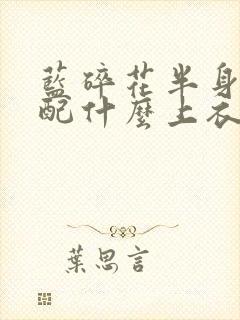 藍碎花半身
配什麼上衣
葉思言